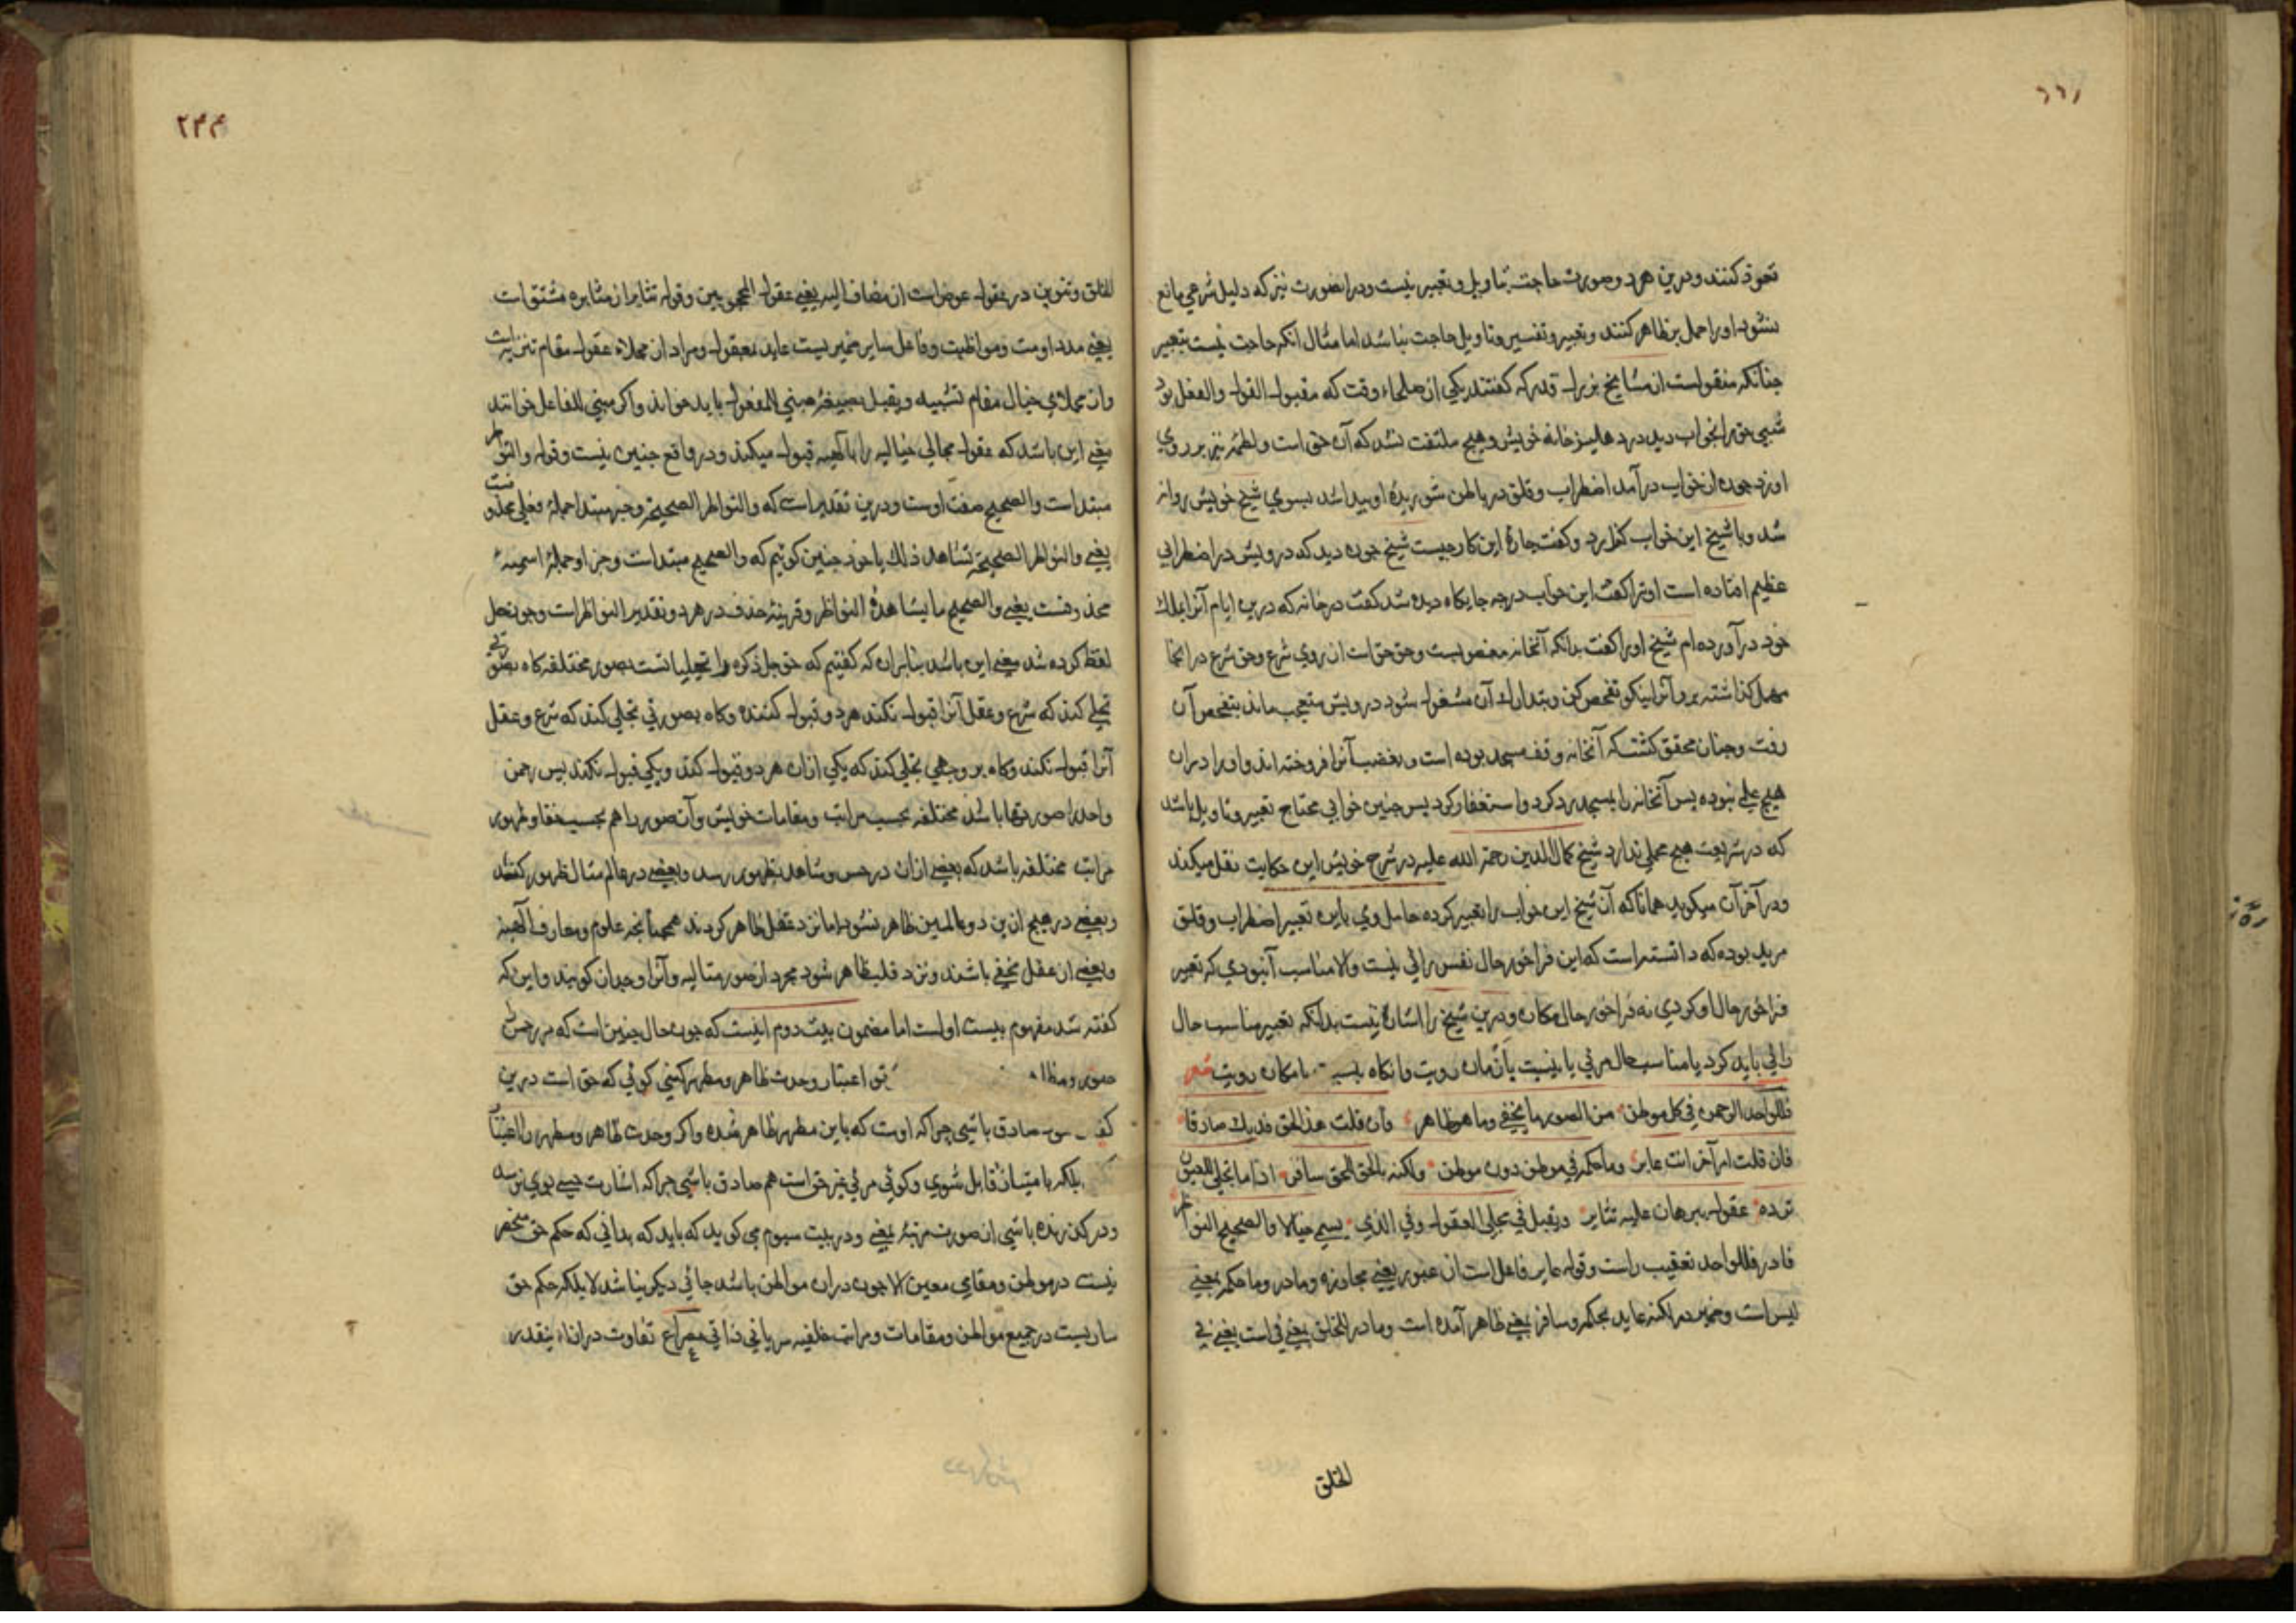 نحوذ کنند و درین هر دو صورت حاجت بتاویل و تعبیر نیست و در انصورت نیز که دلیل شرعی مانع
نشود اورا حمل بر ظاهر کنند و تعبیر و تفسیر و تاویل حاجت نباشد اما مثال انکه حاجت نیست بتعبیر
چنانکه منقولست از مشایخ بزرك قدس که گفتند یکی از صلحاء وقت که مقبول القول والفعل بود
شبی حق را بخواب دید در دهلیز خانه خویش و هیچ ملتفت نشد که آن حق است و لطمه نیز بر روی
او زد چون از خواب درآمد اضطراب و قلق در باطن شوریده او پیدا شد بسوی شیخ خویش روانه
شد و با شیخ این خواب بگفت چارهٔ این کار چیست شیخ چون دید که درویش در اضطرابی
عظیم افتاده است اورا گفت این خواب در چه جایکاه دیده شد گفت در خانه که درین ایام آنرا بملك
خود درآورده‌ام شیخ اورا گفت بدانکه آنخانه مغصوبست و حق حق است از روی شرع و حق شرع در انجا
مهمل گذاشته برو آنرا نیکو تفحص کن و بتدارك آن مشغول شو درویش متعجب ماند بتفحص آن
رفت و چنان محقق گشت که آنخانه وقف مسجد بوده است و بغصب آنرا فروخته اند و اورا در ان
هیچ علمی نبوده پس آنخانه را بمسجد رد کرد و استغفار کرد پس چنین خوابی محتاج تعبیر و تاویل باشد
که در شریعت هیچ محملی ندارد شیخ کمال الدین رحمة الله علیه در شرح خویش این حکایت نقل میکند
و در آخر آن میگوید همانا که آن شیخ این خواب را تعبیر کرده حامل وی باین تعبیر اضطراب و قلق
مرید بوده که دانسته است که این فراخور حال نفس رائی نیست والا مناسب آنبودی که تعبیر
فراخور حال او کردی نه فراخور حال مکان و درین شیخ را اشارة نیست بدانکه تعبیر مناسب حال
رائی باید کرد یا مناسب حال مرئی یا بنسبت با زمان رویت و انکاه بنسبت با مکان رویت شعر
فللواحد الرحمن فی کل موطن من الصور ما یخفی وما هو ظاهر فان قلت هذا الحق قد یك صادقا
فان قلت امر آخر انت عابر وما حکمه فی موطن دون موطن ولکنه بالحق للحق سافر اذا ما تجلی للعیون
ترده عقول ببرهان علیه تثابر ویقبل فی مجلی العقول وفی الذی یسمی خیالا والصحیح النواظر
فا در فللواحد تعقیب راست و قوله عابر فاعل است از عبور یعنی مجاوزه و ما در وما حکمه بمعنی
لیس است و ضمیر در لکنه عاید بحکم و سافر بمعنی ظاهر آمده است و ما در للخلق بمعنی فی است یعنی فی
الخلق
٢٤٤
للخلق و تنوین در عقول عوض است از مضاف الیه یعنی عقول المحجوبین و قوله تثابر از مثابره مشتق است
یعنی مداومت و مواظبت و فاعل سایر ضمیریست عاید بعقول و مراد از مجلاء عقول مقام تنزیه است
و از مجلای خیال مقام تشبیه و یقبل بصیغهٔ مبنی للمفعول باید خواند و اگر مبنی للفاعل خوانند
معنی این باشد که عقول مجالی خیالیه را بالهیه قبول میکند و در واقع چنین نیست و قوله والنواظر
مبتدا است و الصحیح صفت اوست و درین تقدیر است که والنواظر الصحیحة و خبر مبتدا جملهٔ فعلی محذوفست
یعنی والنواظر الصحیحة تشاهد ذلك یا خود چنین گوئیم که والصحیح مبتداست و خبر او جملهٔ اسمیهٔ
محذوفست یعنی والصحیح ما یشاهده النواظر و قرینهٔ حذف در هر دو تقدیر النواظر است و چون حل
لفظ کرده شد معنی این باشد بنابران که گفتیم که حق جل ذکره را تجلیاتست بصور مختلفه گاه بصورتی
تجلی کند که شرع و عقل آنرا قبول نکند هر دو قبول کننده و گاه بصورتی تجلی کند که شرع و عقل
آنرا قبول نکند و گاه بر وجهی تجلی کند که یکی ازان هر دو قبول کند و یکی قبول نکند پس رحمن
واحد را صورتها باشد مختلفه بحسب مراتب و مقامات خویش و آن صور را هم بحسب خفا و ظهور
مراتب مختلفه باشد که بعضی ازان در حس و شاهد بظهور رسد و بعضی در عالم مثال ظهور کنند
و بعضی در هیچ ازین دو عالمین ظاهر نشود اما نزد عقل ظاهر گردند همچنانچه علوم و معارف الهیه
و بعضی از عقل مخفی باشند و نزد قلب ظاهر شود مجرد از صور مثالیه و آنرا وجدان گویند و این که
گفته شد مفهوم بیت اولست اما مضمون بیت دوم اینست که چون حال چنین است که هر چیز
صور و مظا بتو اعتبار وحدت ظاهر و مظهر کنی گوئی که حق است درین
صادق باشی چرا که اوست که باین مظهر ظاهر شده و اگر وحدت ظاهر و مظهر را اعتبار
بلکه بامتیاز قابل شوی و گوئی مرئی غیر حق است هم صادق باشی چرا که اشارت
و در گذرنده باشی از صورت مرتبهٔ بمعنی و در بیت سیوم می گوید که باید که بدانی که حکم حق منحصر
نیست در موطن و مقامی معین الا چون دران موطن باشد جائی دیگر نباشد لا بلکه حکم حق
ساریست در جمیع مواطن و مقامات و مراتب خلقیه سریانی ذاتی مصراع تفاوت در اناء بقدر